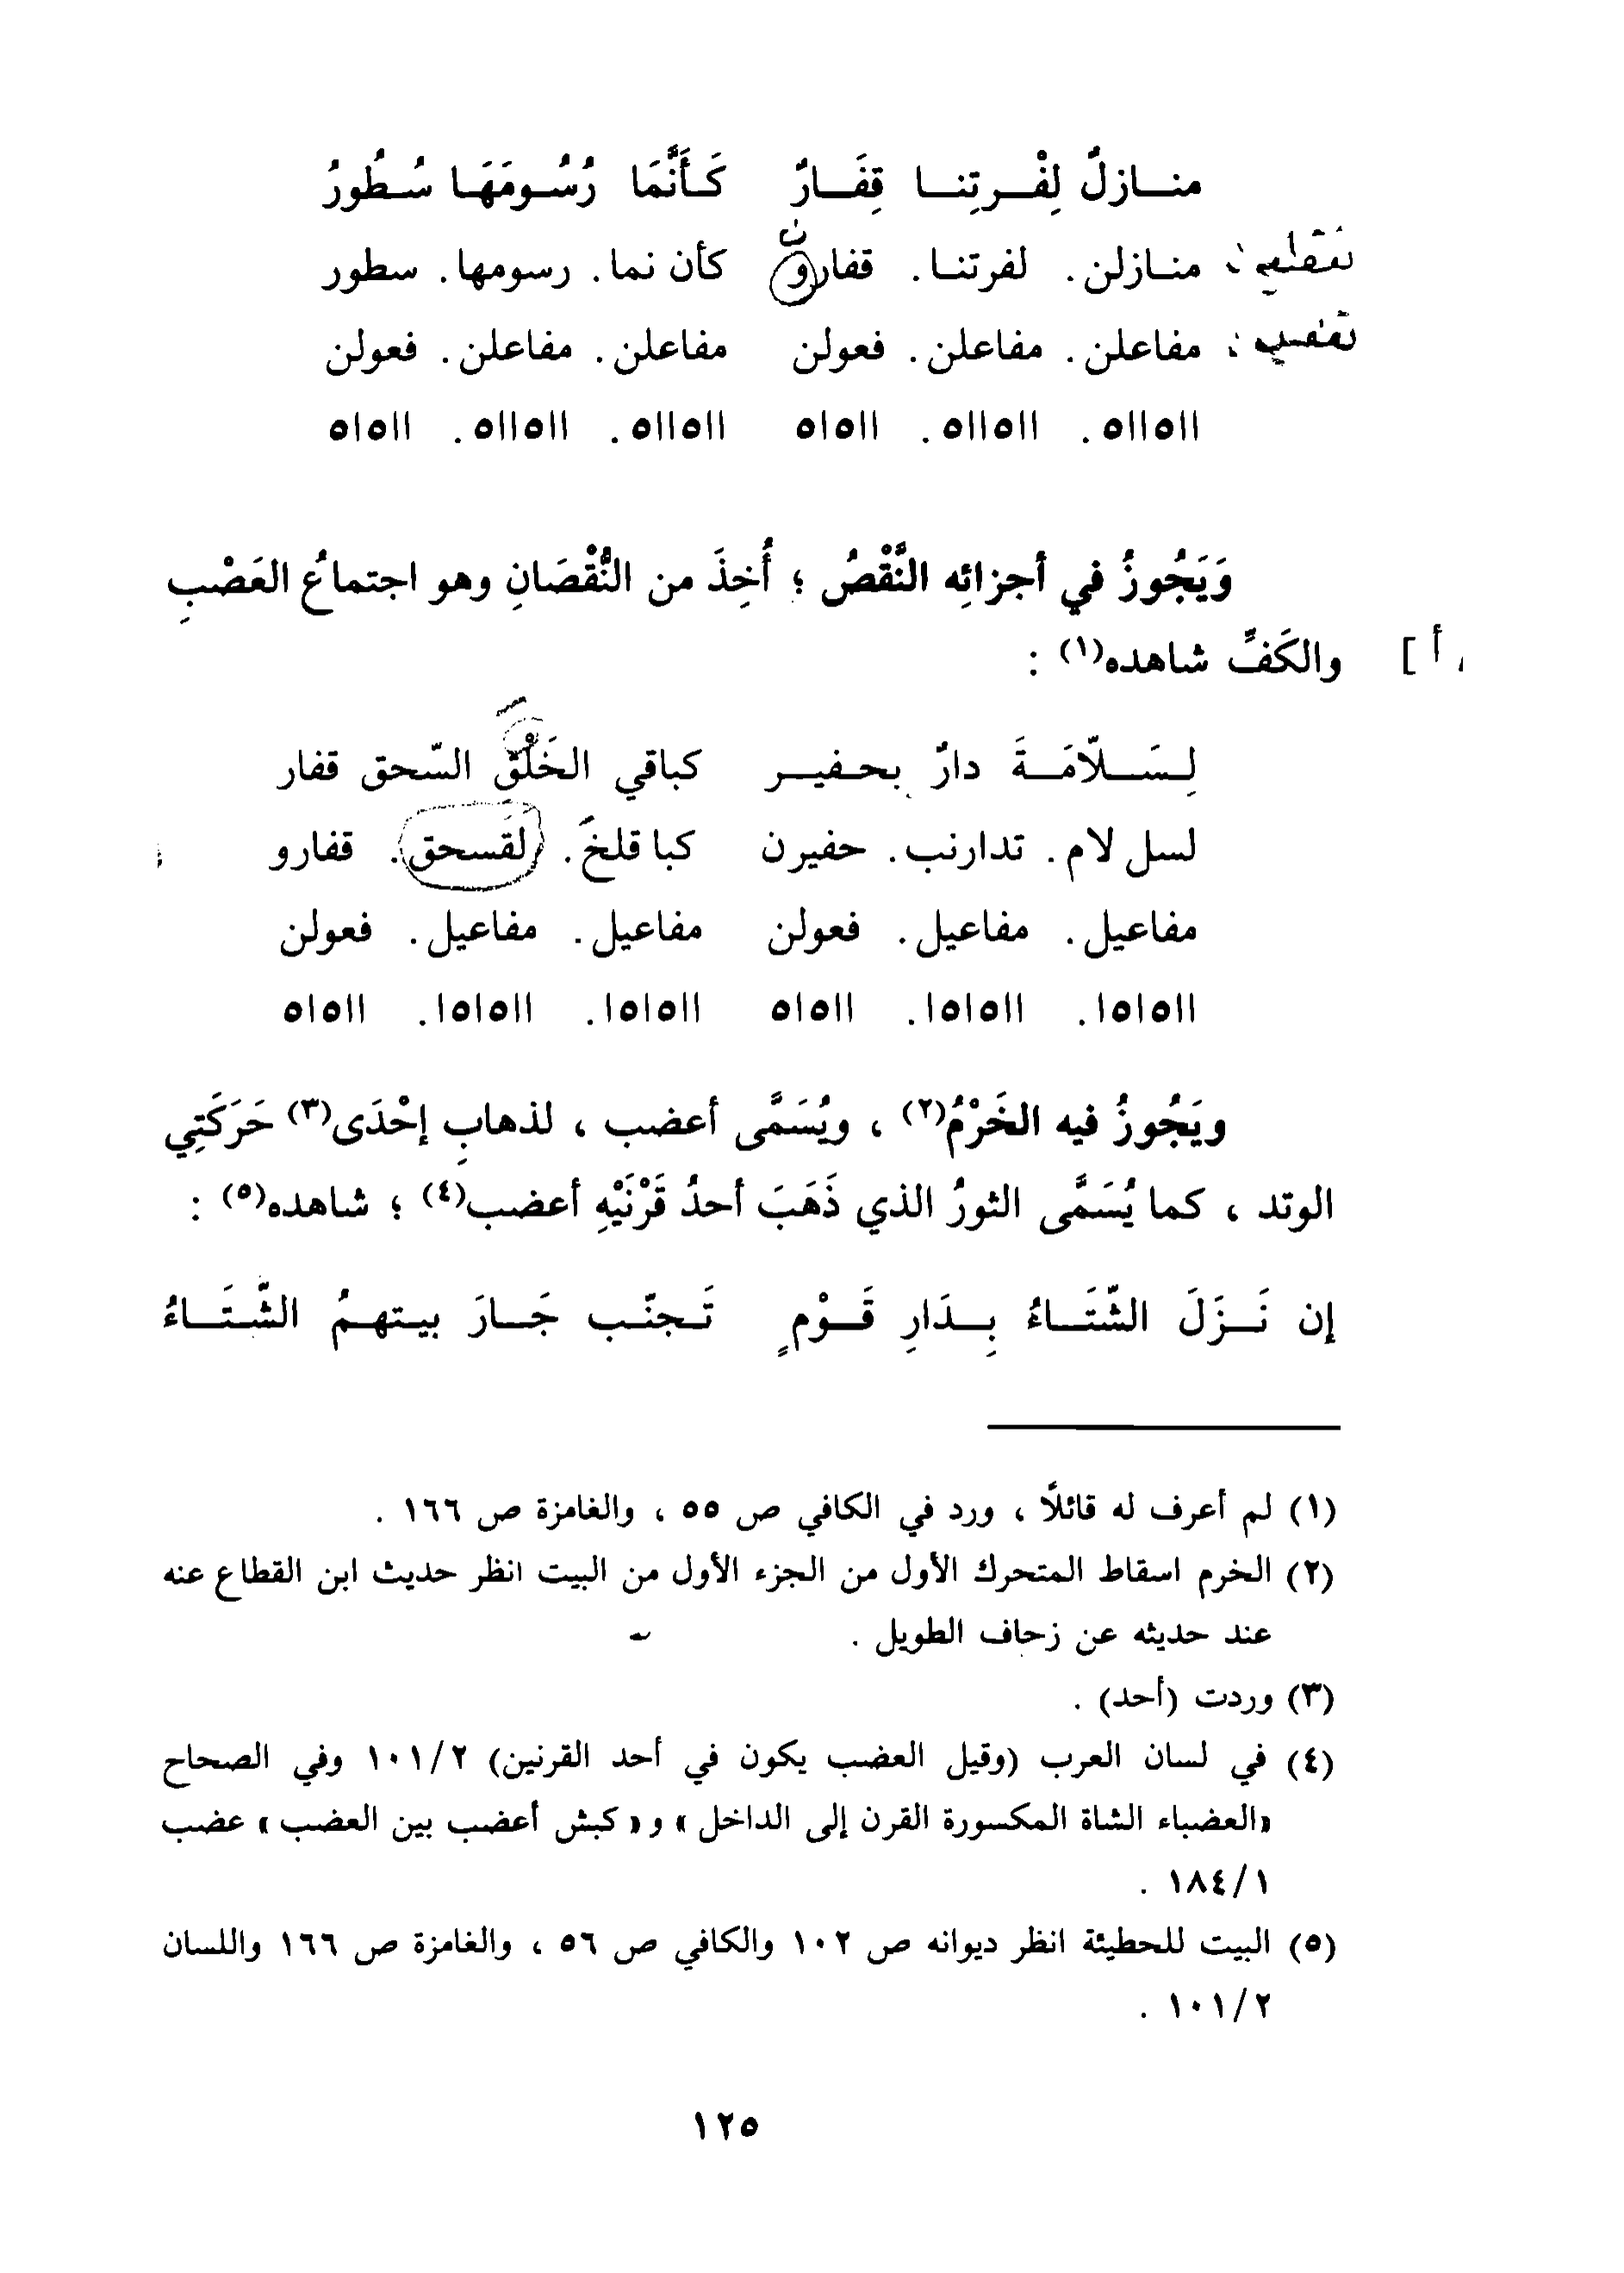 منازلٌ لِفْرتِنا قِفَارٌ كَأَنَّمَا رُسُومَهَا سُطُورُ
منازلن . لفرتنا . قفارو كأن نما . رسومها . سطور
مفاعلن . مفاعلن . فعولن مفاعلن . مفاعلن . فعولن
اا٥اا٥ . اا٥اا٥ . اا٥ا٥ اا٥اا٥ . اا٥اا٥ . اا٥ا٥
وَيَجُوزُ في أجزائِه النَّقْصُ ؛ أُخِذَ من النُّقْصَانِ وهو اجتماعُ العَصْبِ
أ ] والكَفِّ شاهده(١) :
لِسَلاّمَةَ دارٌ بحفير كباقي الخَلْقِ السّحق قفار
لسل لام . تدارنب . حفيرن كبا قلخَ . لقسحق . قفارو
مفاعيل . مفاعيل . فعولن مفاعيل . مفاعيل . فعولن
اا٥ا٥ا . اا٥ا٥ا . اا٥ا٥ اا٥ا٥ا . اا٥ا٥ا . اا٥ا٥
ويَجُوزُ فيه الخَرْمُ(٢) ، ويُسَمَّى أعضب ، لذهابِ إحْدَى(٣) حَرَكَتِي
الوتد ، كما يُسَمَّى الثورُ الذي ذَهَبَ أحدُ قَرْنَيْهِ أعضب(٤) ؛ شاهده(٥) :
إن نَزَلَ الشّتَاءُ بِدَارِ قَوْمٍ تَجنّب جَارَ بيتهمُ الشّتَاءُ
(١) لم أعرف له قائلًا ، ورد في الكافي ص ٥٥ ، والغامزة ص ١٦٦ .
(٢) الخرم اسقاط المتحرك الأول من الجزء الأول من البيت انظر حديث ابن القطاع عنه
عند حديثه عن زحاف الطويل .
(٣) وردت (أحد) .
(٤) في لسان العرب (وقيل العضب يكون في أحد القرنين) ١٠١/٢ وفي الصحاح
«العضباء الشاة المكسورة القرن إلى الداخل» و«كبش أعضب بين العضب» عضب
١٨٤/١ .
(٥) البيت للحطيئة انظر ديوانه ص ١٠٢ والكافي ص ٥٦ ، والغامزة ص ١٦٦ واللسان
١٠١/٢ .
١٢٥